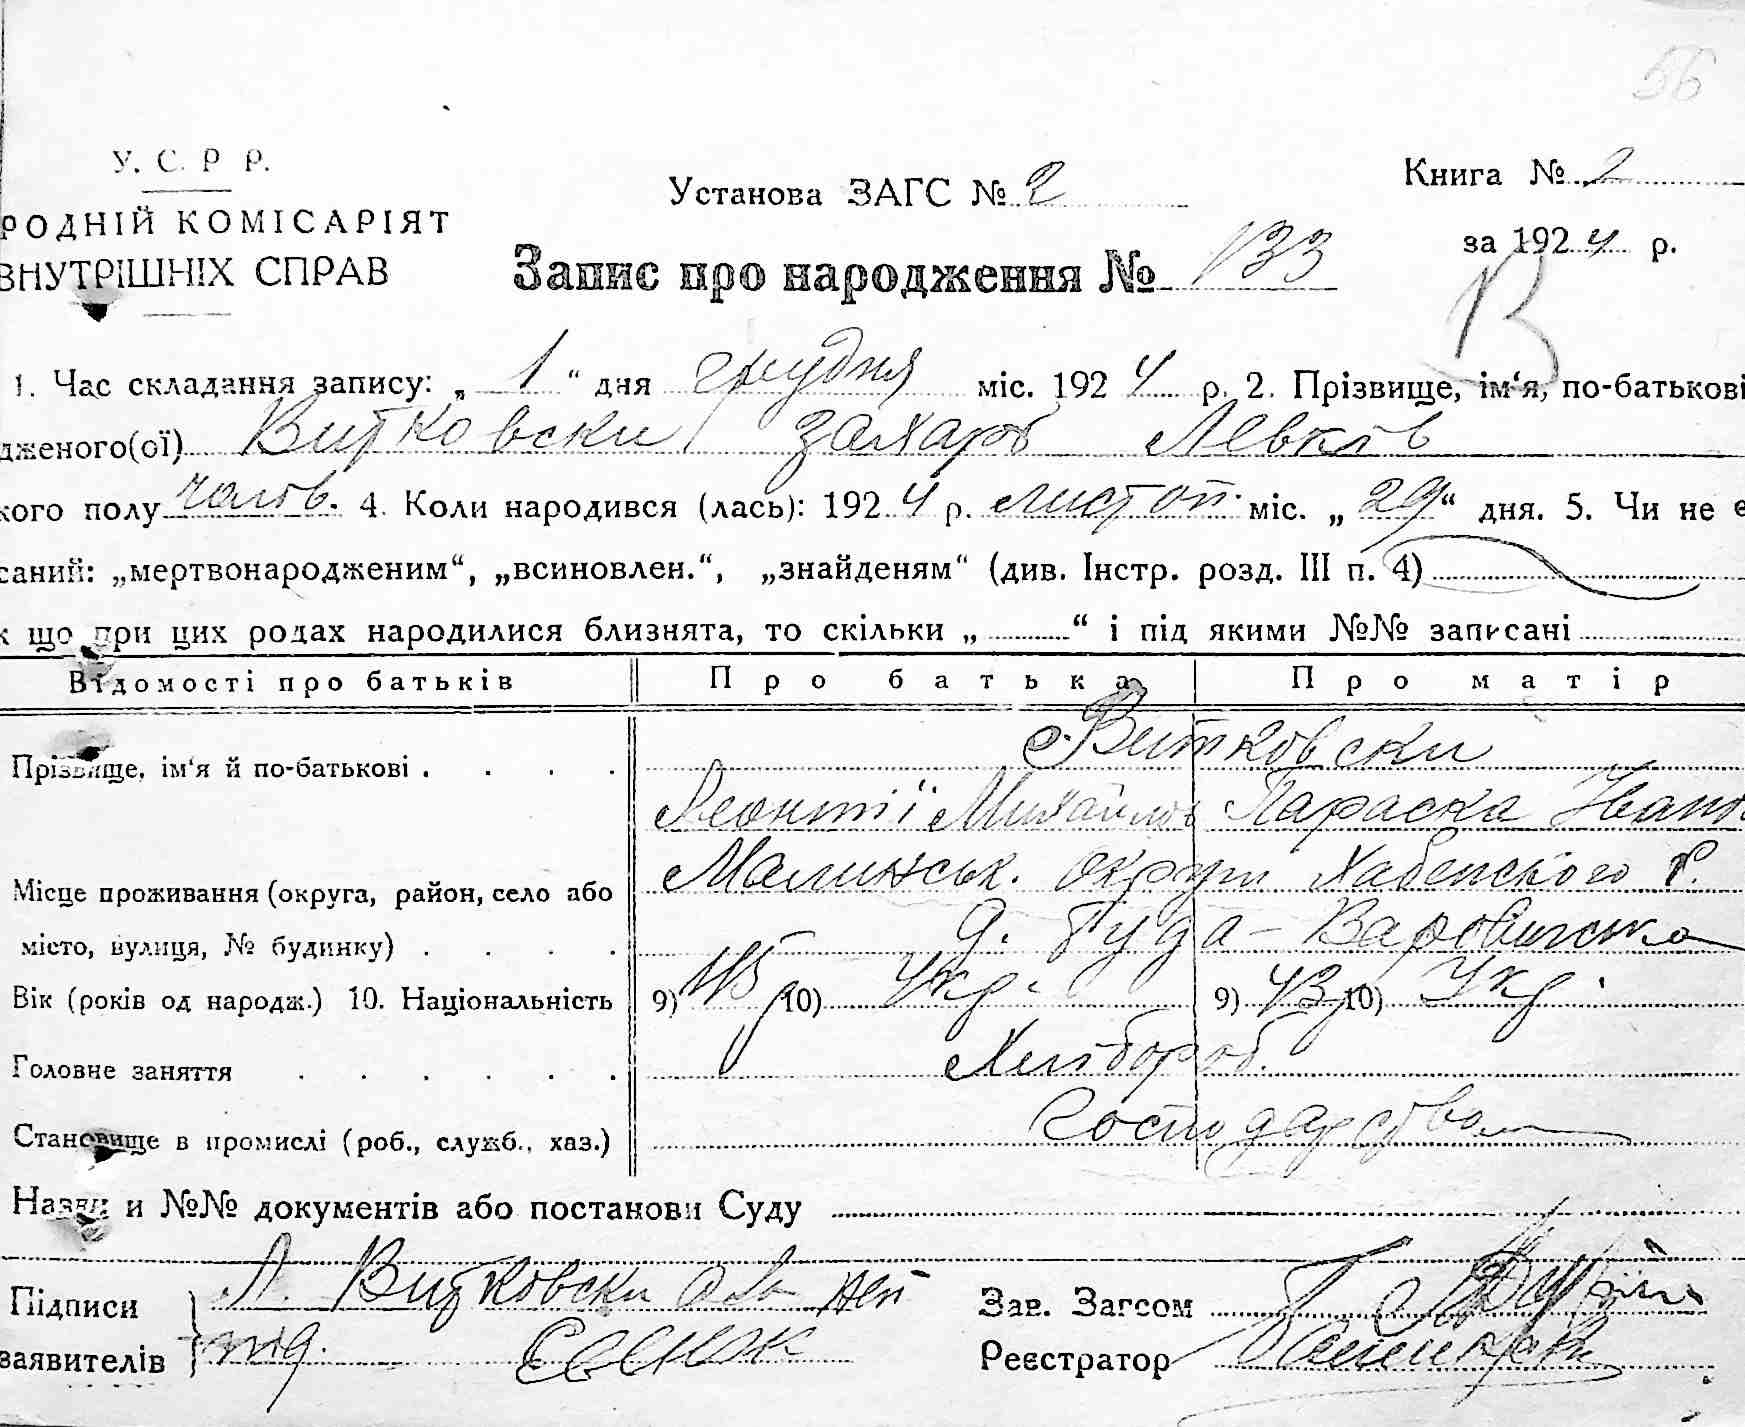 56
У. С. Р. Р.
РОДНІЙ КОМІСАРІЯТ
ВНУТРІШНІХ СПРАВ
Установа ЗАГС № 2
Книга № 2
за 1924 р.
Запис про народження № 133
В
1. Час складання запису: „ 1 “ дня грудня міс. 1924 р. 2. Прізвище, ім‘я, по-батькові
дженого(ої) Витковски Захарь Левків
кого полу чолов. 4. Коли народився (лась): 1924 р. листоп. міс. „ 29 “ дня. 5. Чи не є
саний: „мертвонародженим“, „всиновлен.“, „знайденям“ (див. Інстр. розд. III п. 4)
к що при цих родах народилися близнята, то скільки „ “ і під якими №№ записані
Відомості про батьків Про батька Про матір
Прізвище, ім‘я й по-батькові . . . . Витковски
Леонтії Михайлов Параска Івано
Місце проживання (округа, район, село або Малинськ. округи Хабенского р.
місто, вулиця, № будинку) . . . . Буда-Варовичська
Вік (років од народж.) 10. Національність 9) 45 10) Укр. 9) 43 10) Укр.
Головне заняття . . . . . . Хлібороб.
Становище в промислі (роб., служб., хаз.) Господарства
Назви и №№ документів або постанови Суду
Підписи Л. Витковски Зав. Загсом
заявителів Реєстратор